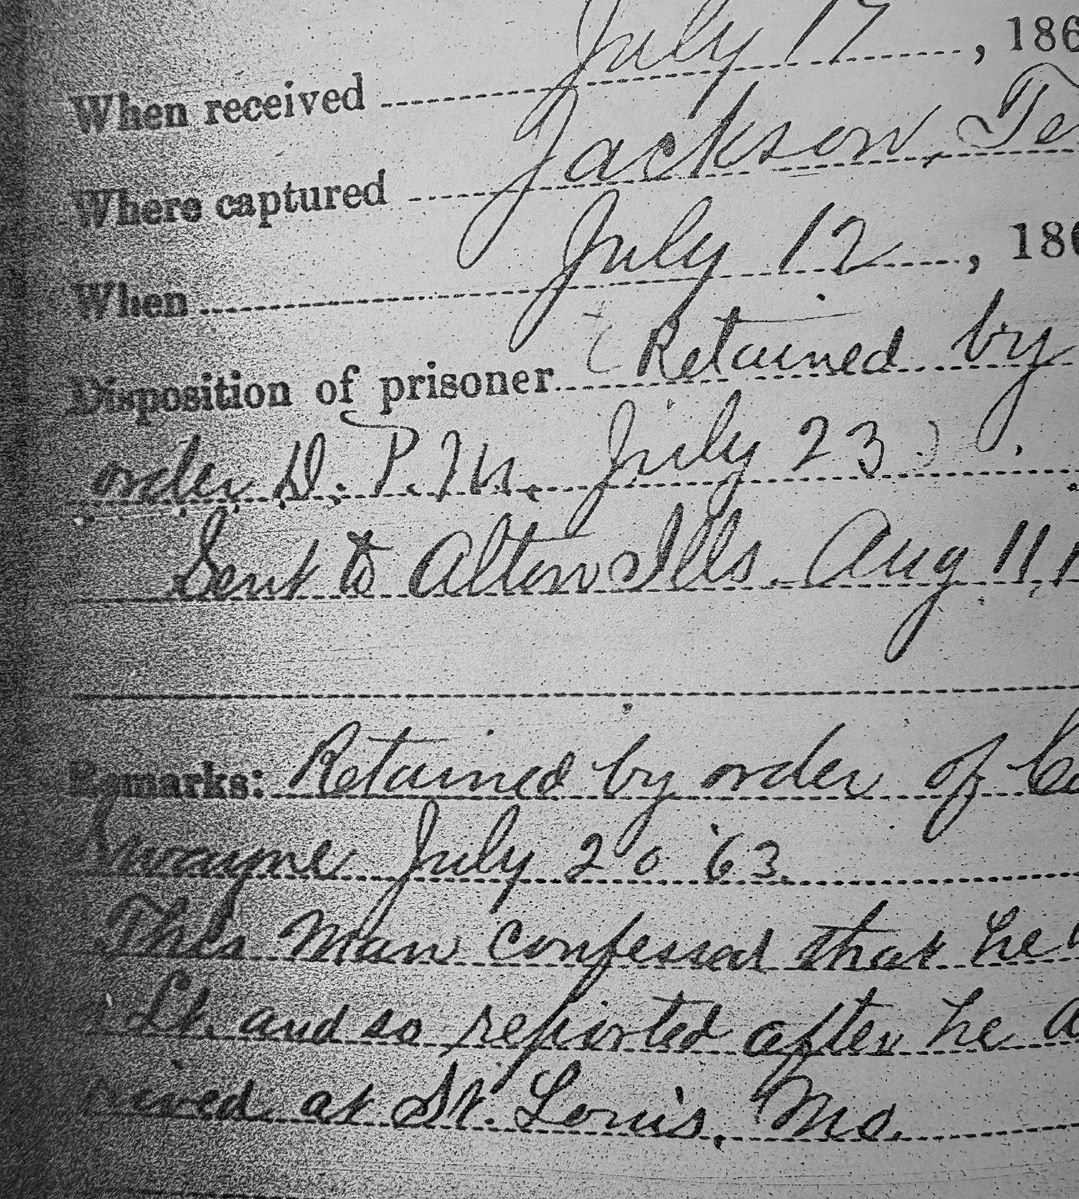 When received July 17, 186
Where captured Jackson, Te
When July 12, 186
Disposition of prisoner (Retained by
order D. P. M. July 23).
Sent to Alton Ills. Aug 11,
Remarks: Retained by order of
Swayne July 20 '63.
This man confessed that he
Lt. and so reported after he a
rived at St. Louis, Mo.